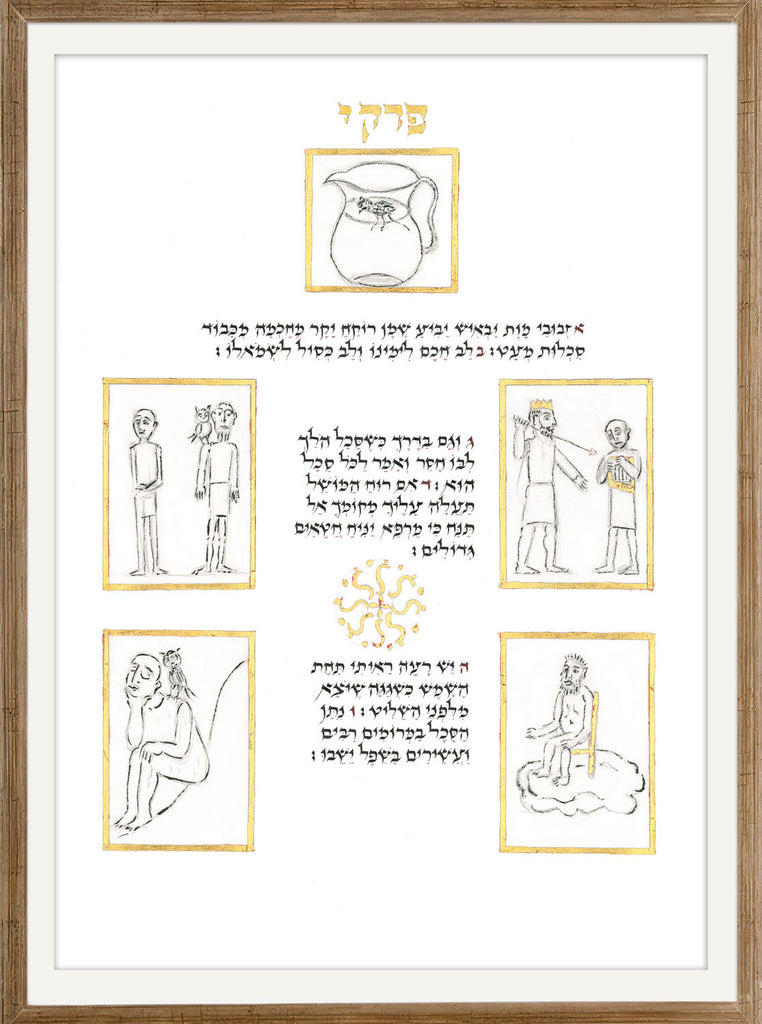 פרקי
א זְבוּבֵי מָוֶת יַבְאִישׁ יַבִּיעַ שֶׁמֶן רוֹקֵחַ יָקָר מֵחָכְמָה מִכָּבוֹד
סִכְלוּת מְעָט: ב לֵב חָכָם לִימִינוֹ וְלֵב כְּסִיל לִשְׂמֹאלוֹ:
ג וְגַם בַּדֶּרֶךְ כְּשֶׁסָּכָל הֹלֵךְ
לִבּוֹ חָסֵר וְאָמַר לַכֹּל סָכָל
הוּא: ד אִם רוּחַ הַמּוֹשֵׁל
תַּעֲלֶה עָלֶיךָ מְקוֹמְךָ אַל
תַּנַּח כִּי מַרְפֵּא יַנִּיחַ חֲטָאִים
גְּדוֹלִים:
ה יֵשׁ רָעָה רָאִיתִי תַּחַת
הַשָּׁמֶשׁ כִּשְׁגָגָה שֶׁיֹּצָא
מִלִּפְנֵי הַשַּׁלִּיט: ו נִתַּן
הַסֶּכֶל בַּמְּרוֹמִים רַבִּים
וַעֲשִׁירִים בַּשֵּׁפֶל יֵשֵׁבוּ: